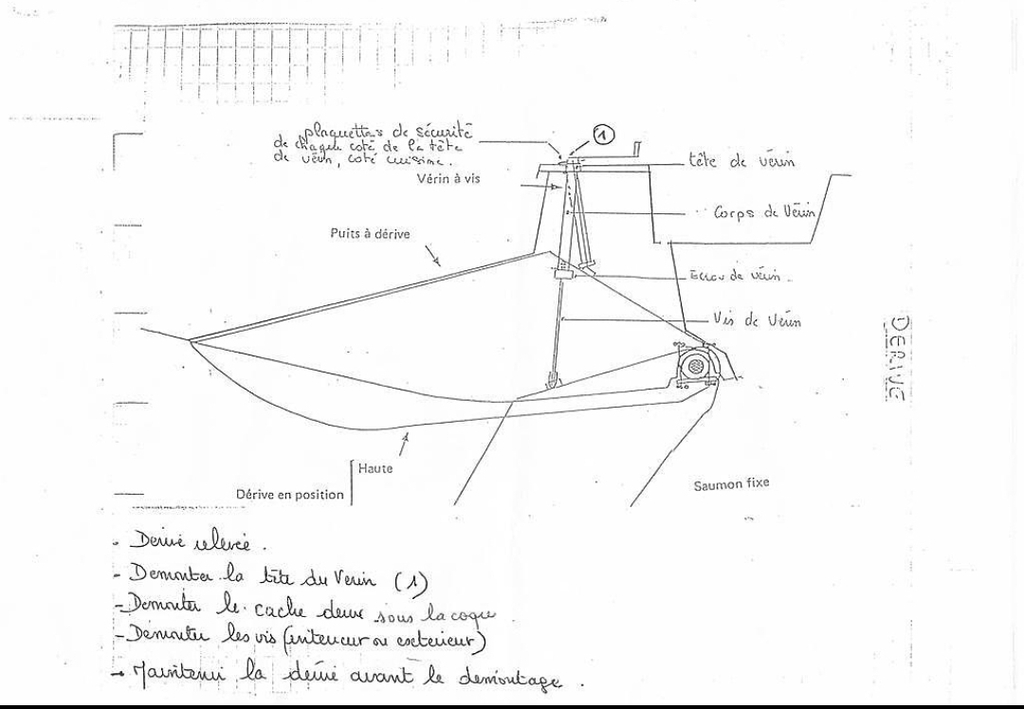 plaquettes de sécurité
de chaque coté de la tête
de vérin, coté cuisine.
1
tête de vérin
Vérin à vis
Corps de Vérin
Puits à dérive
Ecrou de vérin
Vis de Vérin
DERIVE
Haute
Dérive en position
Saumon fixe
- Derive relevée.
- Demonter la tête du Verin (1)
- Demonter le cache derive sous la coque
- Démonter les vis (interieur ou exterieur)
- Maintenir la derive avant le demontage.